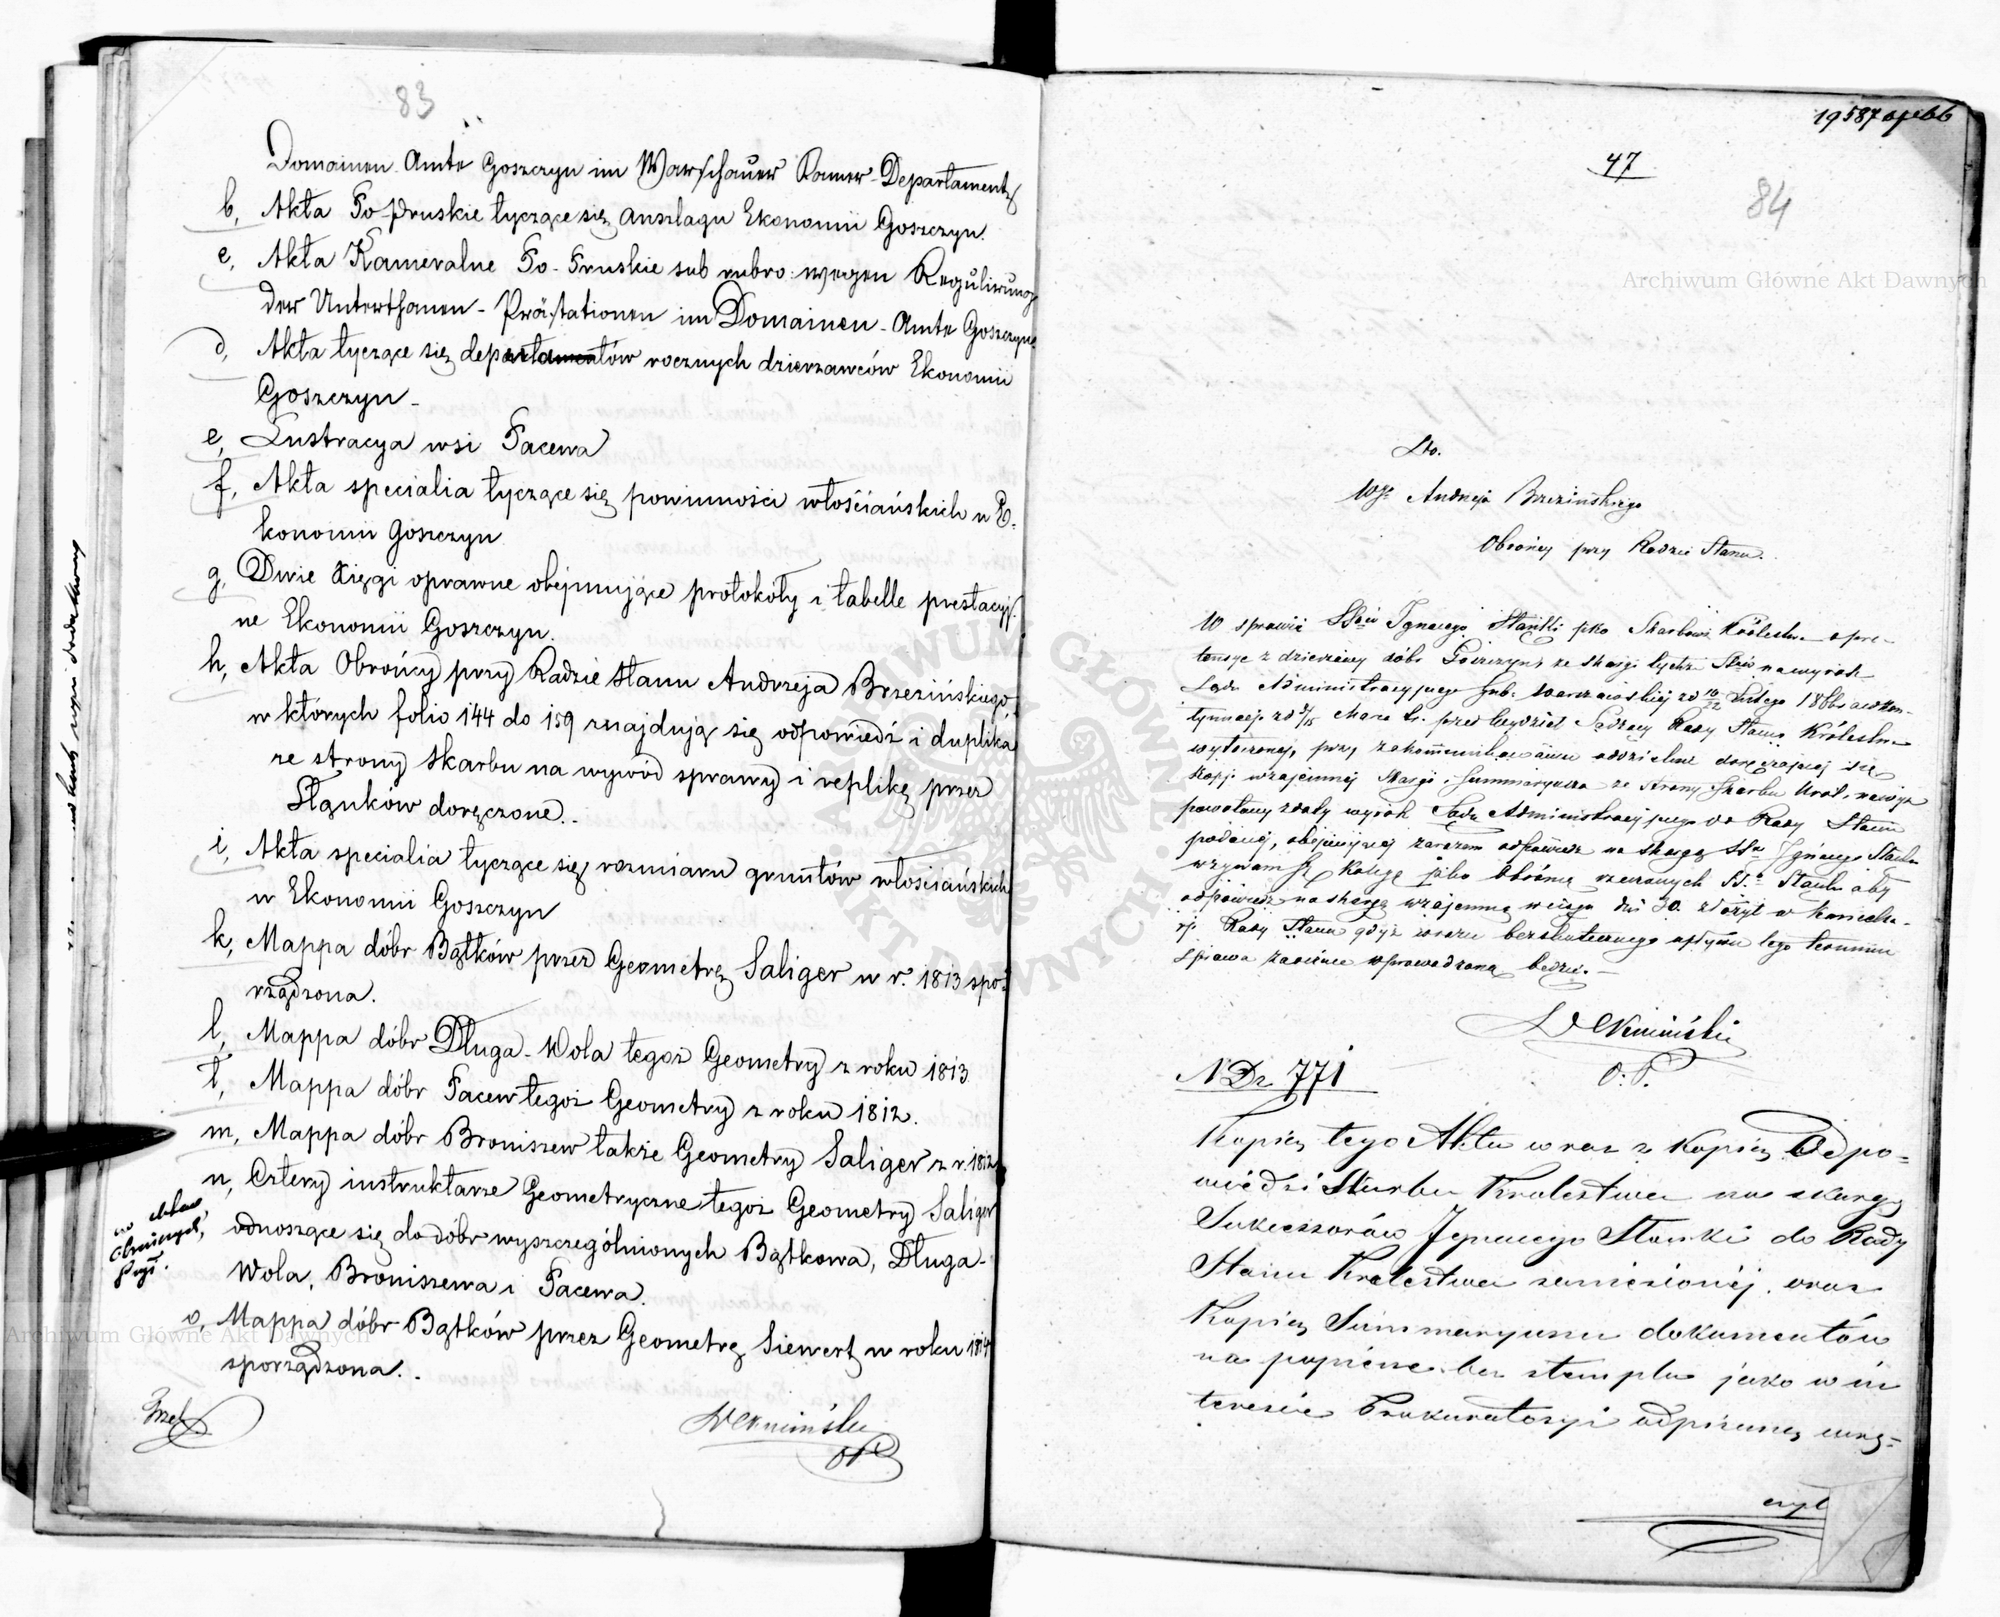 83
Domainen Amte Goszczyn im Warschauer Kamer-Departaments
b, Akta Po-Pruskie tyczące się anszlagu Ekonomii Goszczyn.
c, Akta Kameralne Po-Pruskie sub rubro: wegen Regulirung
der Unterthanen-Prästationen im Domainen-Amte Goszczyn.
d, Akta tyczące się departamentów rocznych dzierzawców Ekonomii
Goszczyn-
e, Lustracya wsi Pacewa
f, Akta specialia tyczące się powinności włościańskich w E-
konomii Goszczyn
g, Dwie księgi oprawne obejmujące protokóły i tabelle prestacyj-
ne Ekonomii Goszczyn.
h, Akta Obrońcy przy Radzie Stanu Andrzeja Brzezińskiego,
w których folio 144 do 159 znajdują się odpowiedź i duplika
ze strony Skarbu na wywód sprawy i replikę przez
Stąnków doręczone.-
i, Akta specialia tyczące się rozmiaru gruntów włościańskich
w Ekonomii Goszczyn
k, Mappa dóbr Bątków przez Geometrę Saliger w r. 1813 spo-
rządzona.
l, Mappa dóbr Długa-Wola tegoż Geometry z roku 1813
ł, Mappa dóbr Pacew tegoż Geometry z roku 1812.
m, Mappa dóbr Broniszew także Geometry Saliger z r. 1812
n, Cztery instruktarze Geometryczne tegoż Geometry Saliger
odnoszące się do dóbr wyszczególnionych Bątkowa, Długa-
Wola, Broniszewa i Pacewa.
o, Mappa dóbr Bątków przez Geometrę Siewert w roku 1814
sporządzona.-
OP
19587
47
84
Do.
Wgo Andrzeja Brzezińskiego
Obrońcy przy Radzie Stanu.
W sprawie SSrów Ignacego Stański pko Skarbowi Królestwa o pre-
tensye z dzierżawy dóbr Goszczyn, ze skargi tychże SSrów na wyrok
Sądu Administracyjnego Gub. Warszawskiej z d 10/22 Lutego 1866
Marca przed Wydział Sądzący Rady Stanu Królestwa
wytoczonej, przy zakommunikowaniu oddzielnie doręczającej się
Kopji wzajemnej skargi i Summaryusza ze strony Skarbu Król. na wyż
powołany wyrok Sądu Administracyjnego do Rady Stanu
podanej, obejmującej zarazem odpowiedź na skargę SSrów Ignacego
wzywam Kolegę jako Obrońcę rzeczonych aby
odpowiedź na skargę wzajemną w ciągu dni 30. złożył w Kancella-
rji Rady Stanu gdyż w razie bezskutecznego upływu tego terminu
sprawa zaocznie wprowadzoną będzie.-
O. P.
N Dz 771
Kopię tego Aktu wraz z Kopią Odpo-
wiedzi Skarbu Królestwa na skargę
Sukcessorów Ignacego Stański do Rady
Stanu Królestwa zaniesionej, oraz
Kopię Summaryusza dokumentów
na papierze bez stempla jako w in
teresie Prokuratoryi odpisaną, wrę-
czył
Archiwum Główne Akt Dawnych
Archiwum Główne Akt Dawnych
ARCHIWUM GŁÓWNE AKT DAWNYCH